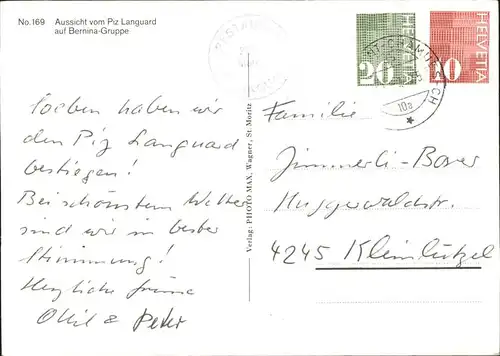 No. 169 Aussicht vom Piz Languard
auf Bernina-Gruppe
Soeben haben wir
den Piz Languard
bestiegen!
Bei schönstem Wetter
sind wir in bester
Stimmung!
Herzliche Grüsse
& Peter
Verlag: PHOTO MAX, Wagner, St Moritz
HELVETIA
20
HELVETIA
10
10a
Familie
Jimmerli-Borer
Huggerwaldstr.
4245 Kleinlützel